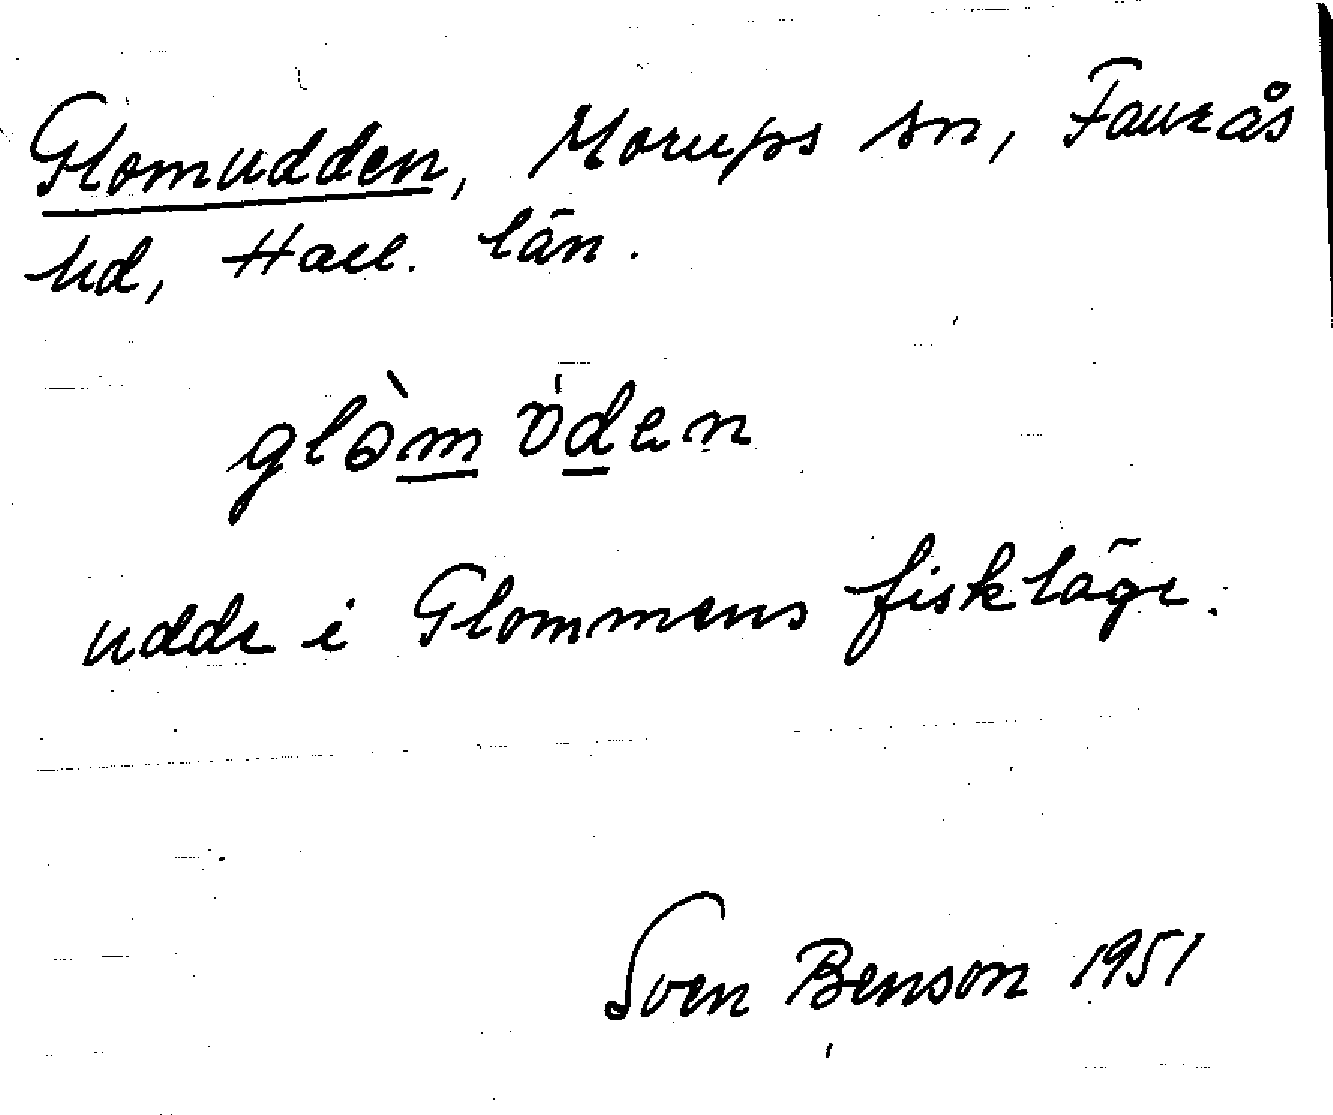 Glomudden, Morups sn, Faurås
hd, Hall. län.
glòm öden
udde i Glommens fiskläge.
Sven Benson 1951